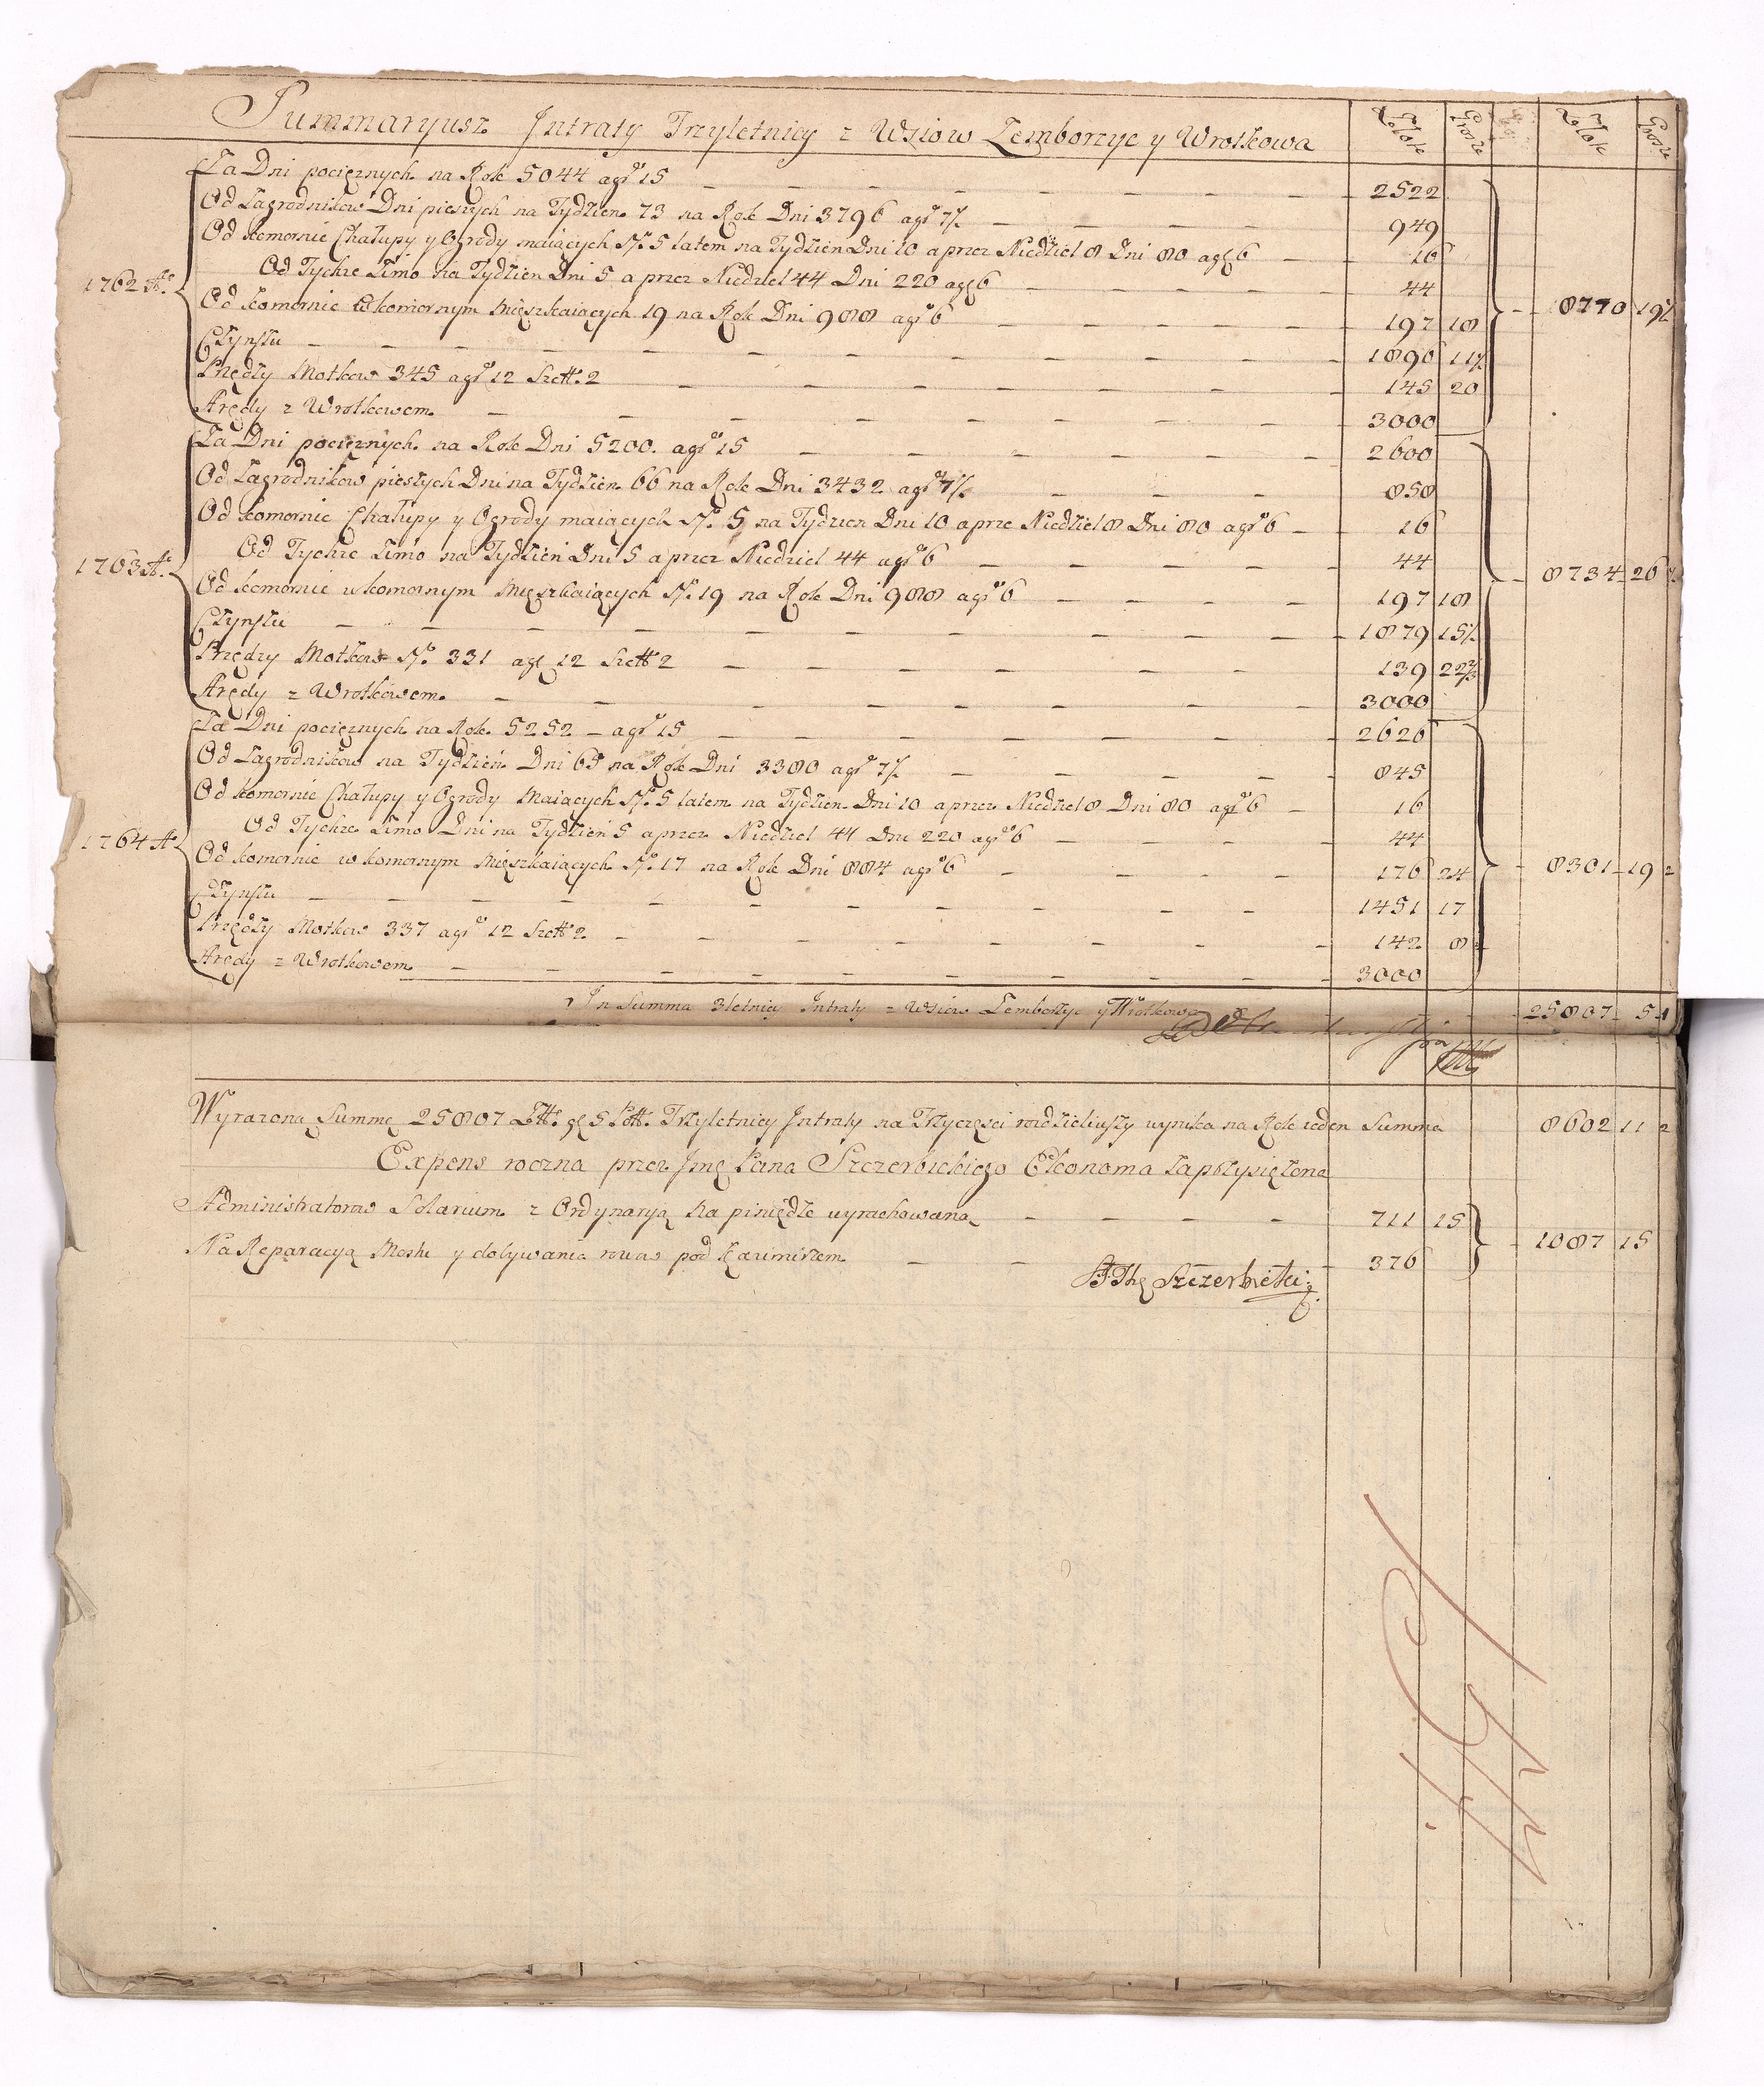 Summaryusz Intraty Trzyletnicy z Wsiow Zemborzyc y Wrotkowa Złote Grosze Złote Grosze
Za Dni pocięznych na Rok 5044 agr 15 — 2522
Od Zagrodnikow Dni pieszych na Tydzien 73 na Rok Dni 3796 agr 7½ — 949
Od Komornic Chałupy y Ogrody maiących No 5 latem na Tydzien Dni 10 a przez Niedziel 8 Dni 80 agr 6 — 16
1762 Ao Od Tychze Zimo na Tydzien Dni 5 a przez Niedziel 44 Dni 220 agr 6 — 44
Od Komornic w komornym mięszkaiących 19 na Rok Dni 988 agr 6 — 197 18 — 8770 19½
Czynszu — 1896 11½
Przędzy Motkow 345 agr 12 Szel 2 — 145 20
Arędy z Wrotkowem — 3000
Za Dni pocięznych na Rok Dni 5200 agr 15 — 2600
Od Zagrodnikow pieszych Dni na Tydzien 66 na Rok Dni 3432 agr 7½ — 858
Od Komornic Chałupy y Ogrody maiących No 5 na Tydzien Dni 10 a prze Niedziel 8 Dni 80 agr 6 — 16
1763 Ao Od Tychze Zimo na Tydzień Dni 5 a przez Niedziel 44 agr 6 — 44 — 8734 26
Od Komornic w komornym Mięszkaiących No 19 na Rok Dni 988 agr 6 — 197 18
Czynszu — 1879 15½
Przędzy Motkow No 331 agr 12 Szel 2 — 139 22⅔
Arędy z Wrotkowem — 3000
Za Dni pocięznych na Rok 5252 — agr 15 — 2626
Od Zagrodnikow na Tydzień Dni 65 na Rok Dni 3380 agr 7½ — 845
Od Komornic Chałupy y Ogrody Maiących No 5 latem na Tydzien Dni 10 a przez Niedziel 8 Dni 80 agr 6 — 16
1764 Ao Od Tychze Zimo Dni na Tydzień 5 a przez Niedziel 44 Dni 220 agr 6 — 44
Od Komornic w komornym Mięszkaiących No 17 na Rok Dni 884 agr 6 — 176 24 — 8301 19 2
Czynszu — 1451 17
Przędzy Motkow 337 agr 12 Szel 2 — 142 8
Arędy z Wrotkowem — 3000
In Summa 3letnicy Intraty z Wsiow Zemborzyc y Wrotkowa 25807 5 1
Wyrazoną Summę 25807 gr 5 Trzyletnicy Intraty na Trzy częsci rozdzieliwszy wynika na Rok ieden Summa 8602 11 2
Expens roczna przez Jmę Pana Szczerbickiego Ekonoma zaprzysięzona
Administratorow Solarium z Ordynaryą na piniędze wyrachowaną — 711 15
Na Reparacyą Mostu y dobywania rowow pod Kazimiszem — 376 — 1087 15
Szczerbicki